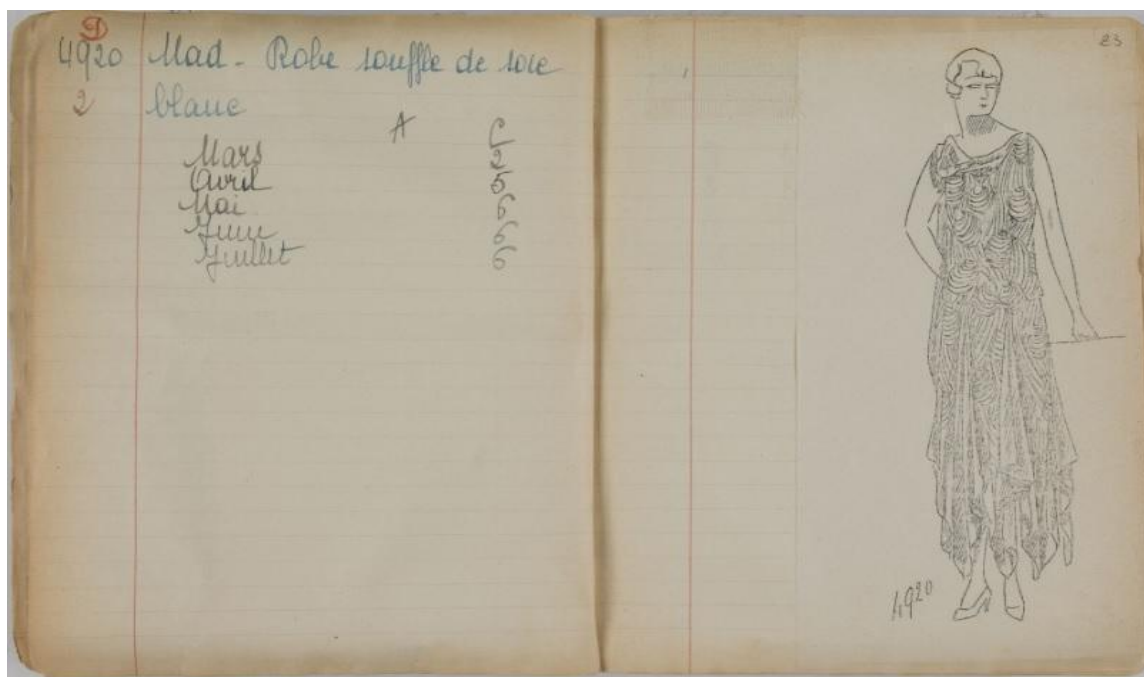 4920 Mad - Robe souffle de soie
2 blanc
A C
Mars 2
Avril 5
Mai 6
Juin 6
Juillet 6
23
4920